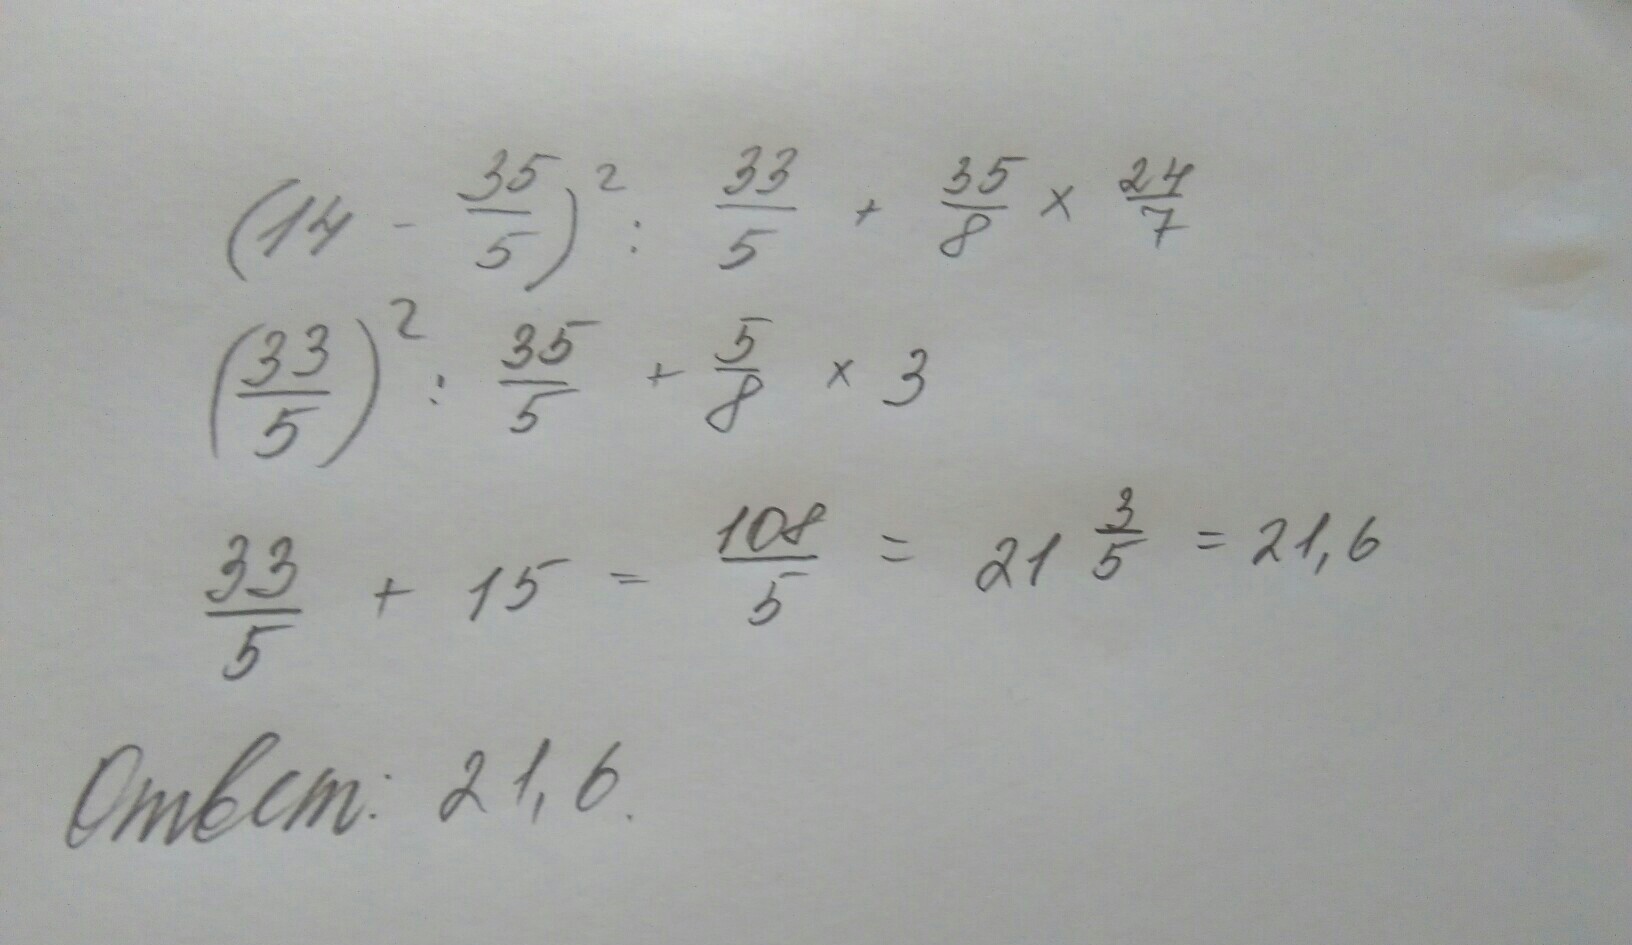 (14 - 35/5)² : 33/5 + 35/8 × 24/7
(33/5)² : 35/5 + 5/8 × 3
33/5 + 15 = 108/5 = 21 3/5 = 21,6
Ответ: 21,6.